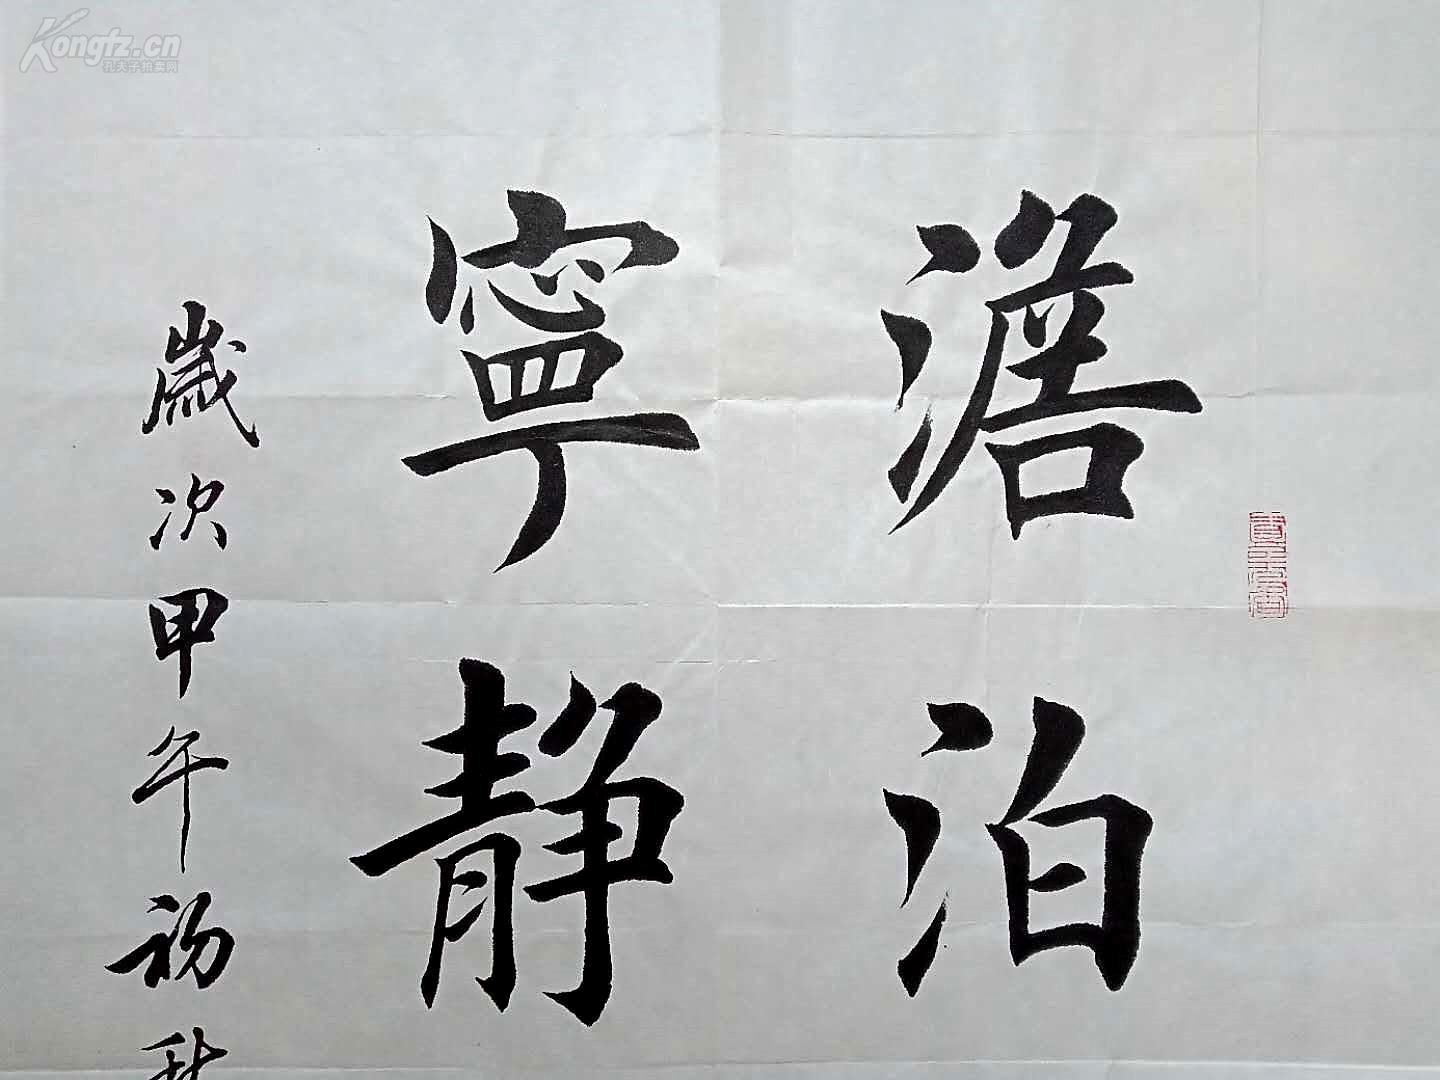 澹泊
寧靜
歲次甲午初秋
Kongfz.cn
孔夫子拍卖网